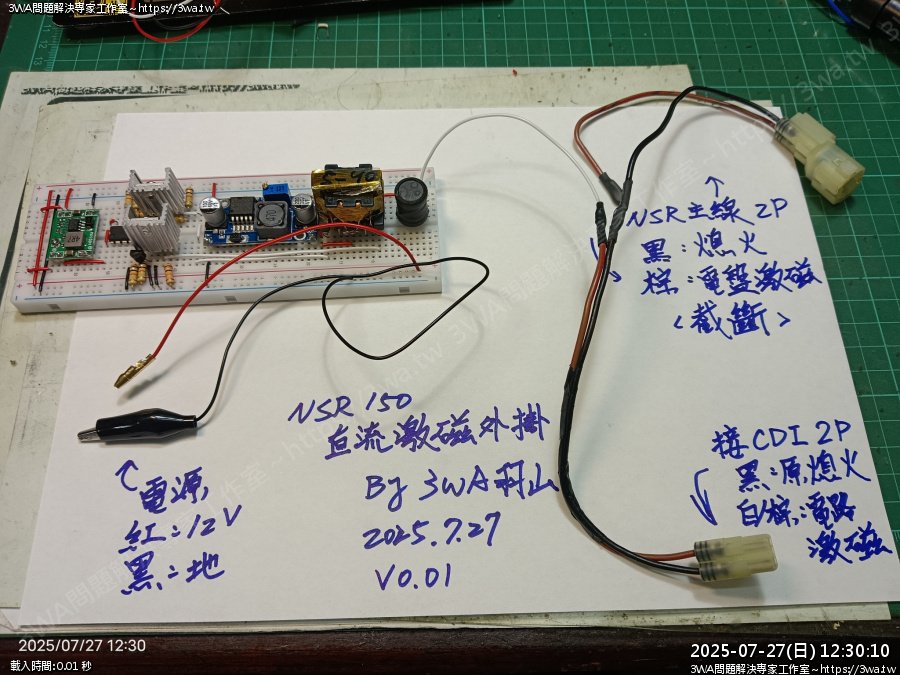 3WA問題解決專家工作室~https://3wa.tw
NSR 主線 2P
黑:熄火
棕:電盤激磁
<截斷>
NSR 150
直流激磁外掛
By 3WA羽山
2025.7.27
V0.01
電源
紅:12V
黑:地
接 CDI 2P
黑:原熄火
白/棕:電路
激磁
2025/07/27 12:30
載入時間:0.01 秒
2025-07-27(日) 12:30:10
3WA問題解決專家工作室~https://3wa.tw